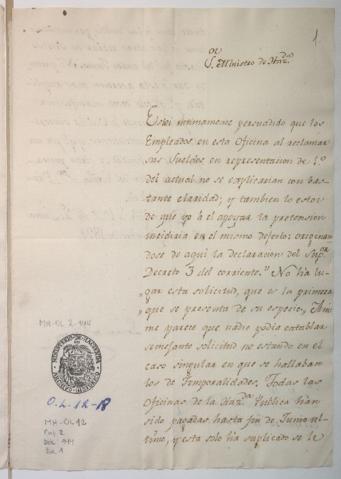 1
S.or Ministro de Haz.da
Estoi intimamente persuadido que los
Empleados en esta Oficina al reclamar
sus Sueldos en representacion de 1.o
del actual no se explicarian con bas-
tante claridad; y tambien lo estoi
de que yo al apoyar la pretension
incidiria en el mismo defecto: originan-
dose de aqui la declaracion del Sup.or
Decreto 3 del corriente." No ha lu-
„ gar esta solicitud, que es la primera
„ que se presenta de su especie, A mi
me parece que nadie podia entablar
semejante solicitud no estando en el
caso singular en que se hallaban
los de Temporalidades. Todas las
Oficinas de la Haz.da Publica han
sido pagadas hasta fin de Junio ul-
timo, y esta solo ha suplicado se le
MH-OL 2-944
O.L. 12-18
MH-OL 12
Caj. 2
Doc. 944
Fol. 1